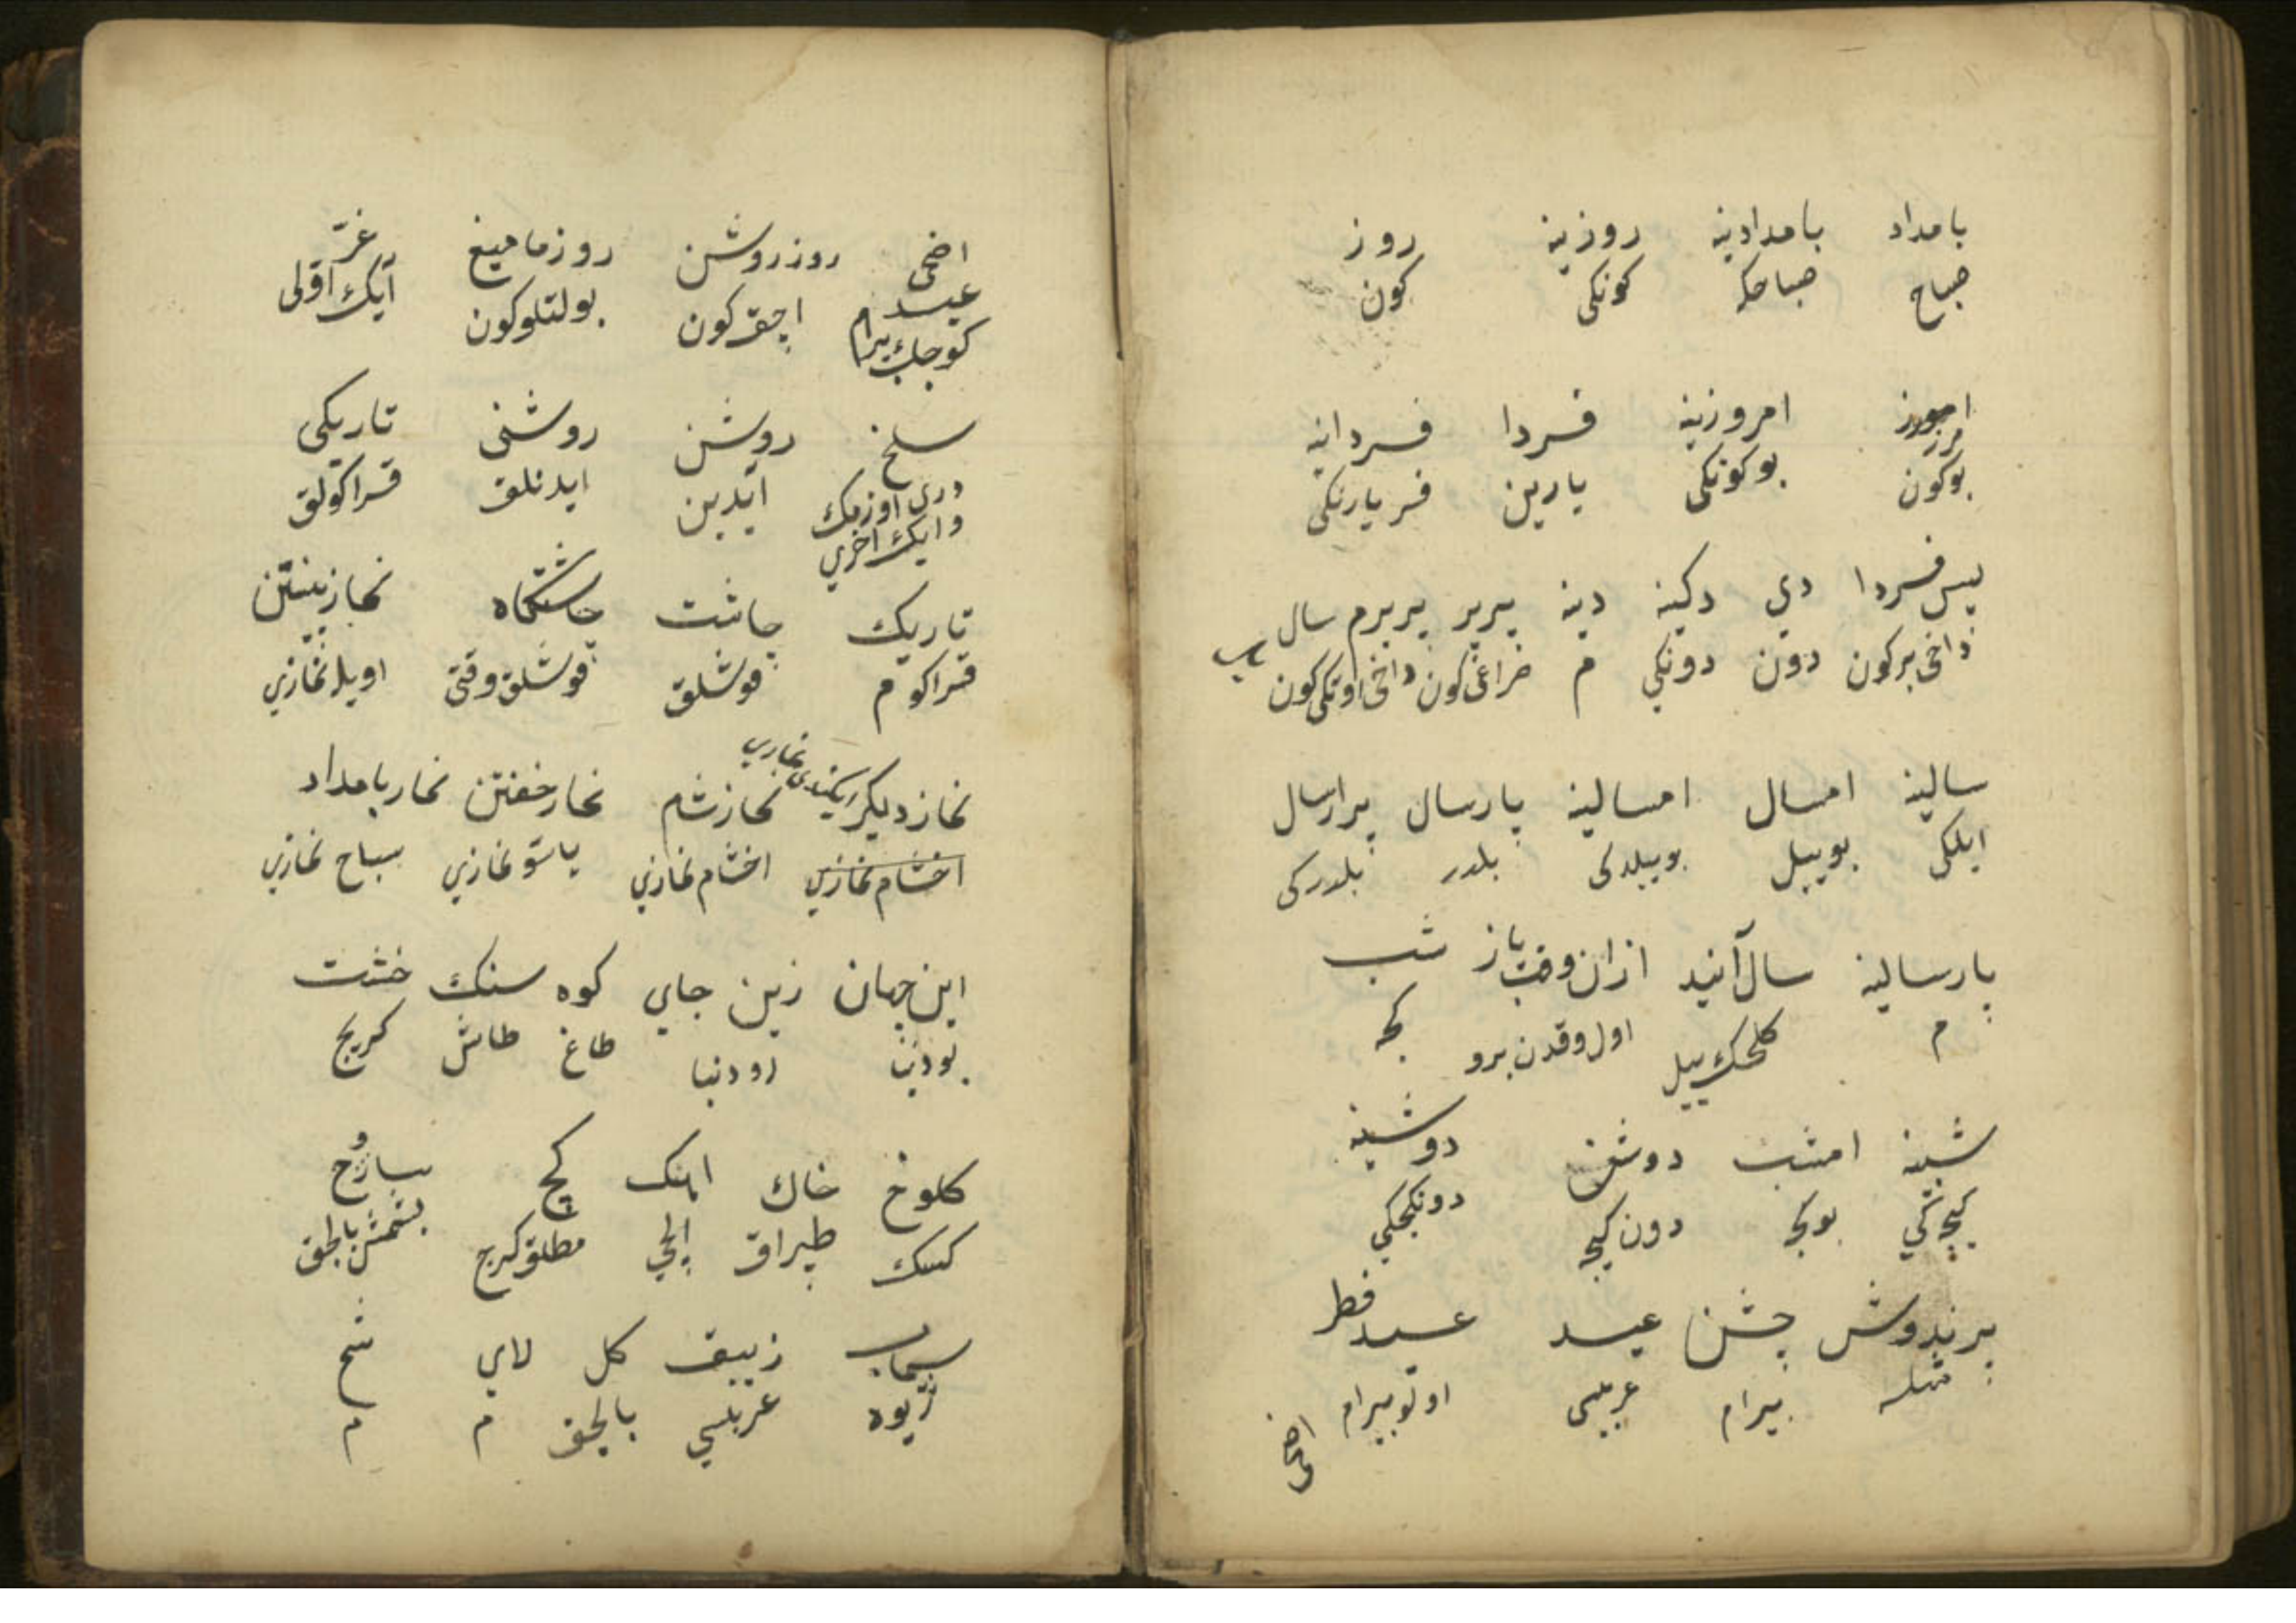 بامداد بامدادینه روزینه روز
صباح صباحکه کونکی کون
امروزینه فردا فردانه
بوکون بوکونکی یارین یارنکی
پس فردا دی دینه پریر سال
داخی برکون دون دونکی م کون داخی اوتکی کون ییل
سالینه امسال امسالینه پارسال پرارسال
ایلکی بوییل بوییلدکی بلدر بلدرکی
پارسالینه سال آینده ازان وقت باز شب
م کلجک ییل اول وقدن برو کجه
شبینه امشب دوش دوشینه
کیجه کی بوکجه دون کیجه دونکجکی
پرندوش جشن عید عید فطر
بیرام عربی اوتو بیرام
اضحی
اضحی روز روشن روز مامیغ غرّ
عید
کوجک بیرام اچق کون بولتلو کون آیک اوّلی
سلخ روشن روشنی تاریکی
دری اوزمک آیدین ایدنلق قراکولق
و ایک اخری
تاریک چاشت چاشتکاه نماز پیشین
قراکو م قوشلق قوشلق وقتی اویله نمازی
نماز دیکر ایکندی نمازی نماز شام نماز خفتن نماز بامداد
اخشام نمازی اخشام نمازی یاتسو نمازی سباح نمازی
این جهان زین جای کوه سنک خشت
بو دنیا دنیا طاغ طاش کرپج
کلوخ خاک اهک کچ
کسک طپراق مطلق کرج بشمش بالجق
سیماب زیبق کل لای شخ
ژیوه عربی بالجق م م